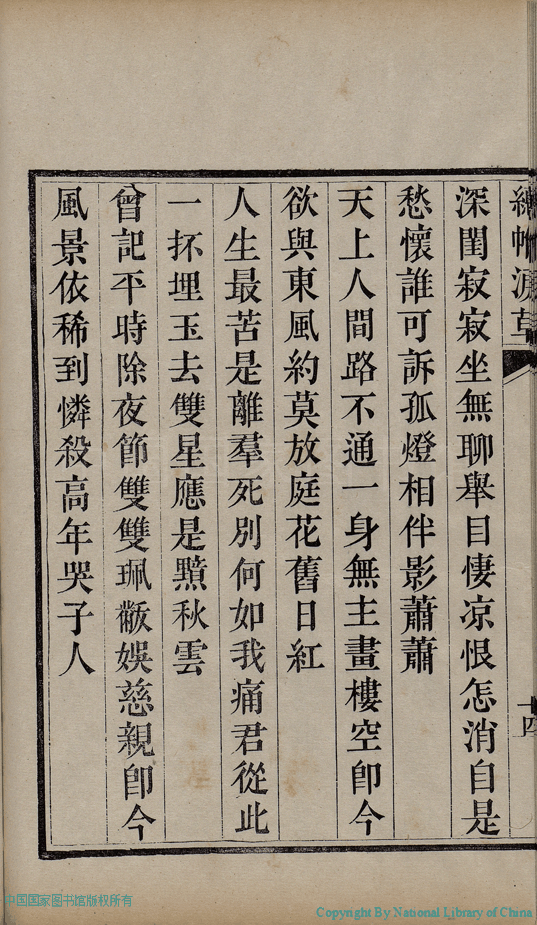 繐帷淚草
十四
深閨寂寂坐無聊舉目悽凉恨怎消自是
愁懷誰可訴孤燈相伴影蕭蕭
天上人間路不通一身無主畫樓空卽今
欲與東風約莫放庭花舊日紅
人生最苦是離羣死別何如我痛君從此
一抔埋玉去雙星應是黯秋雲
曾記平時除夜節雙雙珮黻娛慈親卽今
風景依稀到憐殺高年哭子人
中国国家图书馆版权所有
Copyright By National Library of China